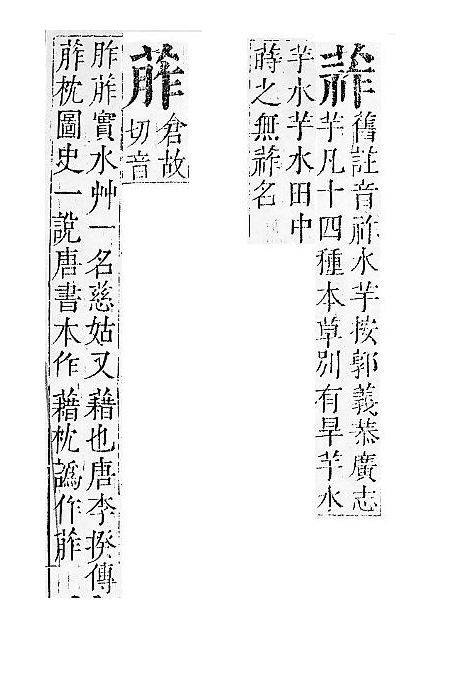 舊註音祚水芋按郭義恭廣志
芋凡十四種本草別有旱芋水
芋水芋水田中
蒔之無名
葄
倉故
切音
胙葄實水艸一名慈姑又藉也唐李揆傳
葄枕圖史一說唐書本作藉枕譌作葄